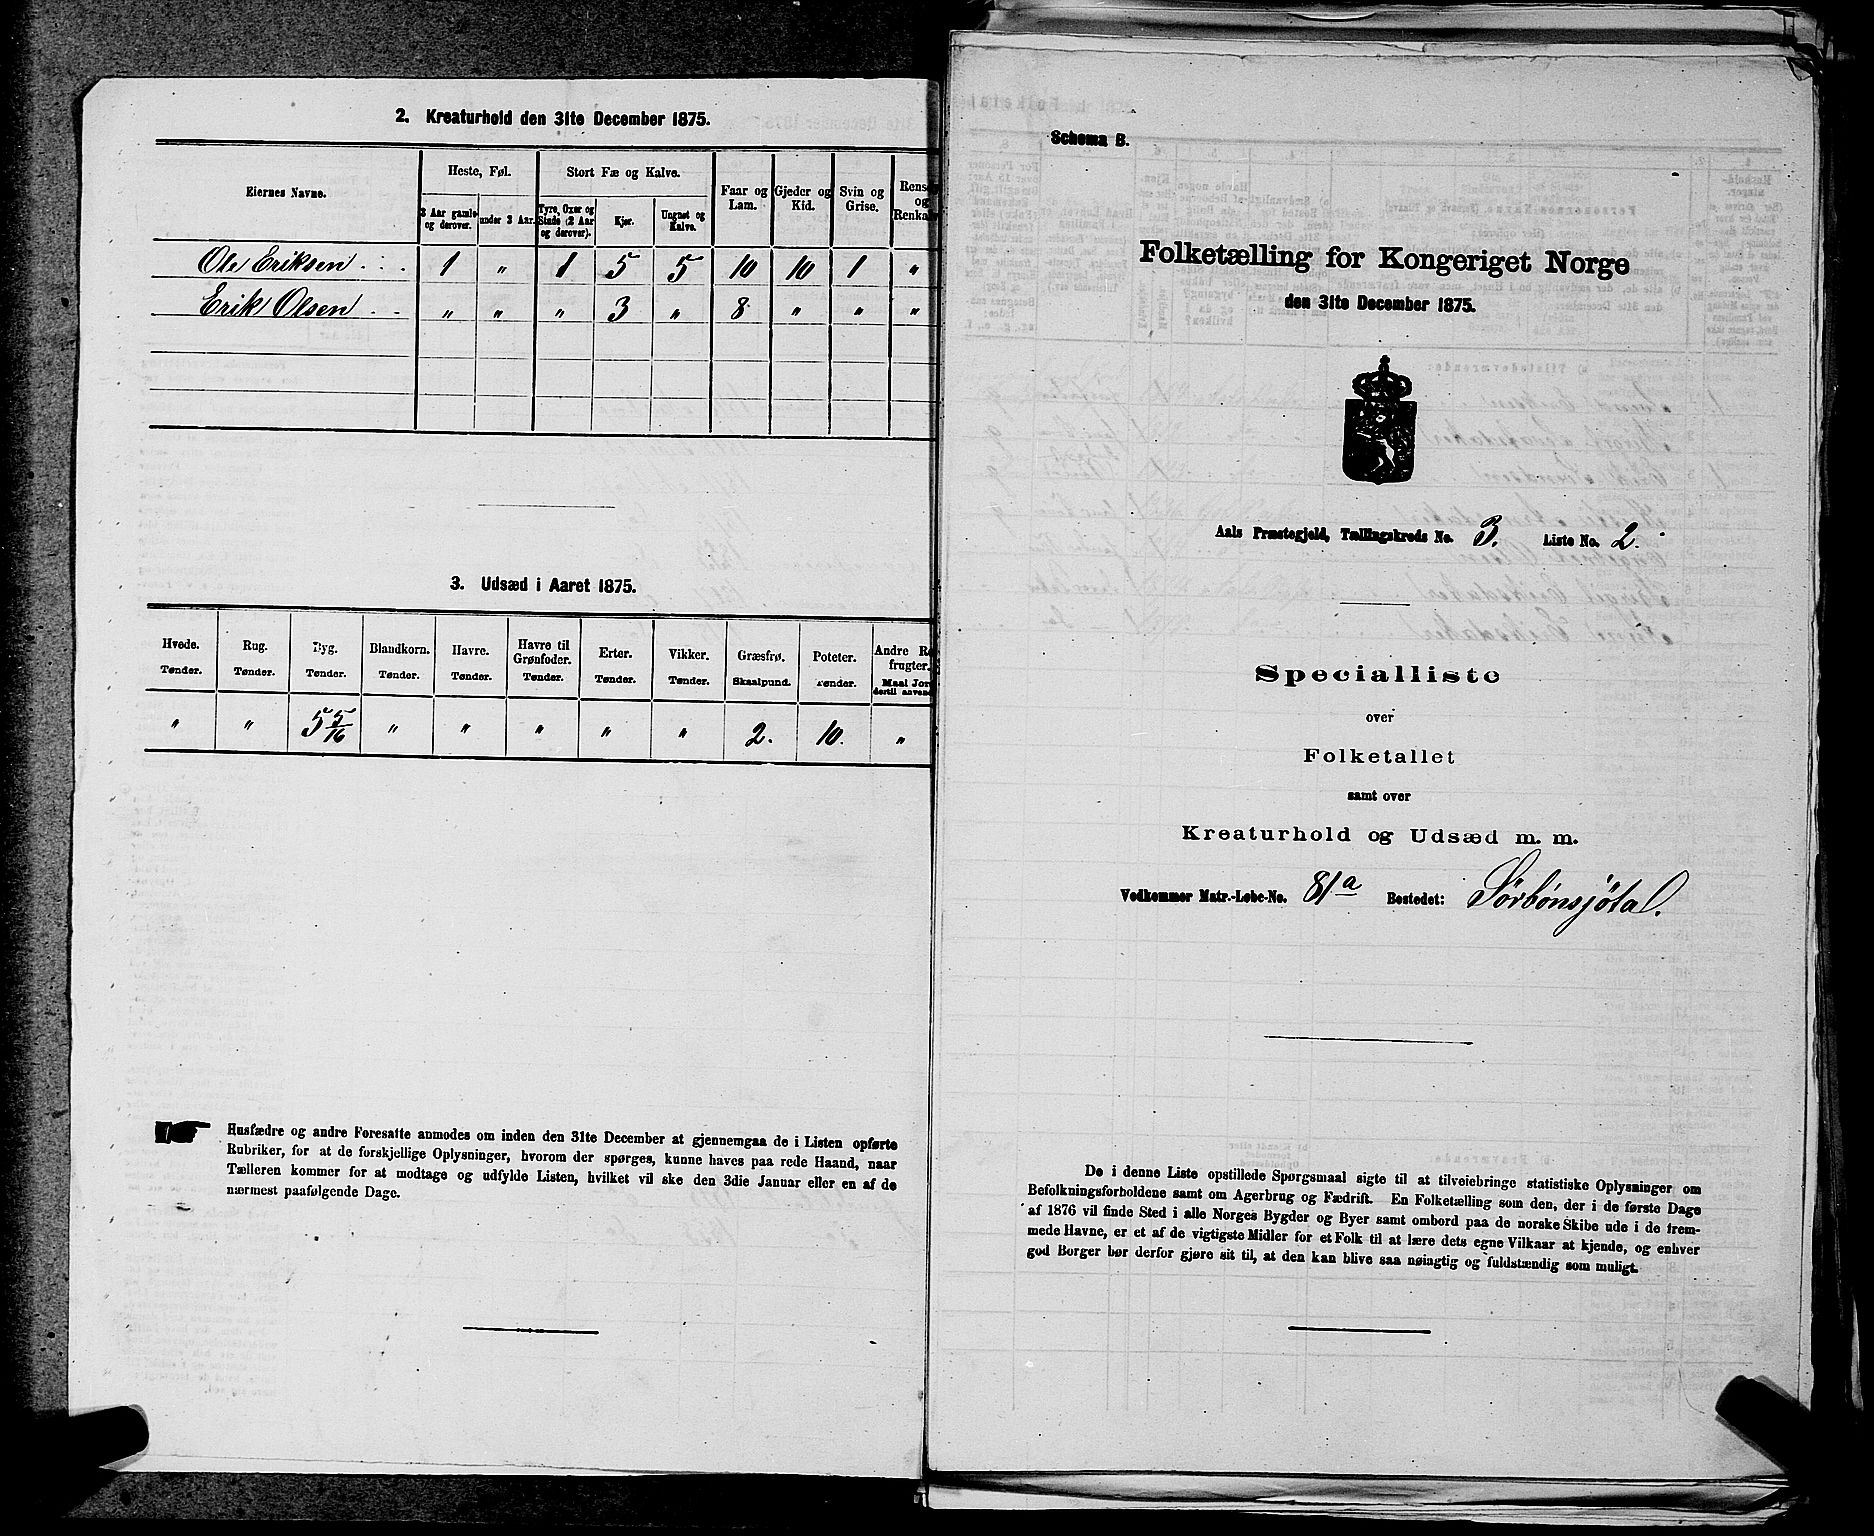 2. Kreaturhold den 31te December 1875.
Eiernes Navne.
Heste, Føl.
Stort Fæ og Kalve.
Faar og Lam.
Gjeder og Kid.
Svin og Grise.
3 Aar gamle og derover.
under 3 Aar.
Tyre, Oxer og Stude (2 Aar og derover).
Kjør.
Ungnøt og Kalve.
Ole Eriksen . . . 1 " 1 5 5 10 10 1 "
Erik Olsen . . " " " 3 " 8 " " "
3. Udsæd i Aaret 1875.
Hvede. Rug. Byg. Blandkorn. Havre. Havre til Grønfoder. Erter. Vikker. Græsfrø. Poteter. Andre
Tønder. Tønder. Tønder. Tønder. Tønder. Tønder. Tønder. Tønder. Skaalpund. Tønder. Maal
" " 5 5/16 " " " " " 2. 10. "
Husfædre og andre Foresatte anmodes om inden den 31te December at gjennemgaa de i Listen opførte
Rubriker, for at de forskjellige Oplysninger, hvorom der spørges, kunne haves paa rede Haand, naar
Tælleren kommer for at modtage og udfylde Listen, hvilket vil ske den 3die Januar eller en af de
nærmest paafølgende Dage.
Schema B.
Folketælling for Kongeriget Norge
den 31te December 1875.
Aals Præstegjeld, Tællingskreds No. 3. Liste No. 2.
Specialliste
over
Folketallet
samt over
Kreaturhold og Udsæd m. m.
Vedkommer Matr.-Løbe-No. 81a Bostedet: Sørbønsjøtal.
De i denne Liste opstillede Spørgsmaal sigte til at tilveiebringe statistiske Oplysninger om
Befolkningsforholdene samt om Agerbrug og Fædrift. En Folketælling som den, der i de første Dage
af 1876 vil finde Sted i alle Norges Bygder og Byer samt ombord paa de norske Skibe ude i de frem-
mede Havne, er et af de vigtigste Midler for et Folk til at lære dets egne Vilkaar at kjende, og enhver
god Borger bør derfor gjøre sit til, at den kan blive saa nøiagtig og fuldstændig som muligt.